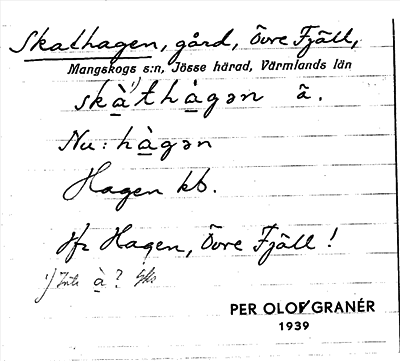 Skathagen, gård, Övre Fjäll,
Mangskogs s:n, Jösse härad, Värmlands län
skà̱¹⁾thà̱gən ã.
Nu: hà̱gən
Hagen kb.
Jfr Hagen, Övre Fjäll!
¹⁾ Inte à̱?
PER OLOF GRANÉR
1939